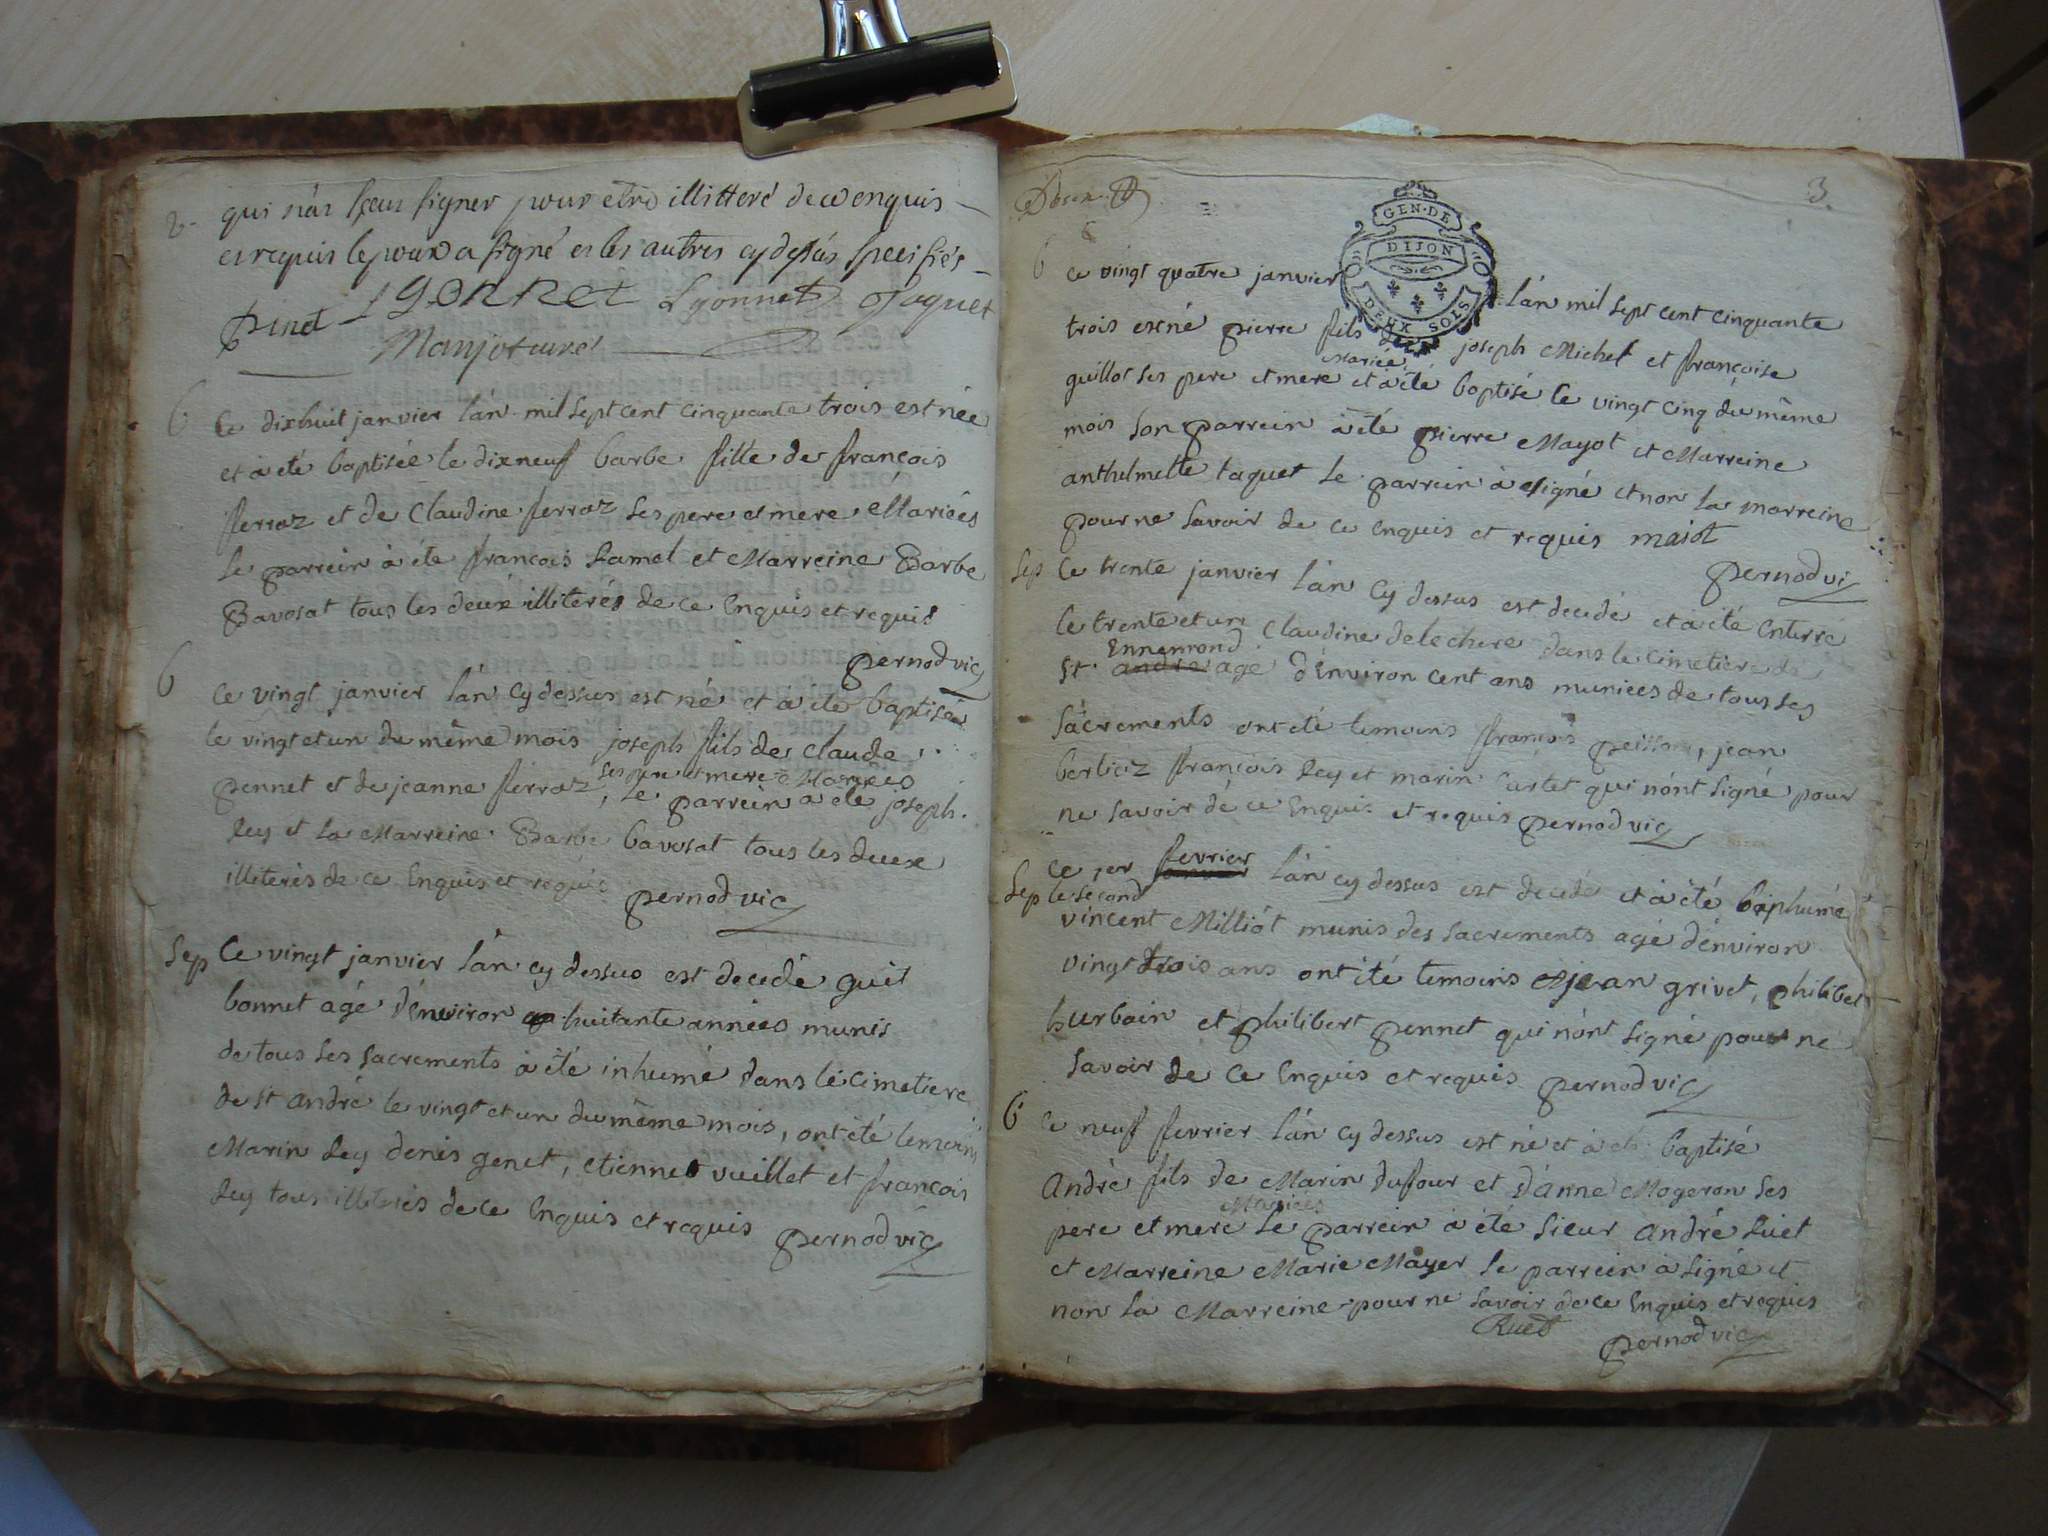 2.
qui n'as sçeu signer pour etre illitteré de ce enquis
et requis lepoux a signé et les autres cy desus speciffiés
pinet LYONNET Lyonnet Jaquet
Manjot curé
b Ce dixhuit janvier l'án mil sept cent cinquante trois est née
et à eté baptisée le dixneuf barbe fille de francois
ferroz et de Claudine ferroz ses pere et mere Mariées
le parrein à éte francois Lamel et Marreine Barbe
Bavosat tous les deux illiterés de ce Enquis et requis
pernod vic
b Ce vingt janvier l'án cy dessus est né et à eté baptisée
le vingt et un du même mois joseph fils de claude
ses pere et mere Mariées
pennet et de jeanne ferroz, le parrein a ete joseph
Rey et la Marreine Barbe bavosat tous les deux
illiterés de ce Enquis et requis pernod vic
Sep Ce vingt janvier l'án cy dessus est decedé guil
bonnet agé d'énviron huitante années munis
de tous ses sacrements à été inhumé dans le cimetiere
de st andré le vingt et un du même mois, ont été temoins
Marin Rey denis genet, etienne vuillet et francois
Rey tous illiterés de ce Enquis et requis pernod vic
3.
GEN·DE
DIJON
DEUX SOLS
b Ce vingt quatre janvier l'án mil sept cent cinquante
trois est né pierre fils de joseph Michel et françoise
Mariée
guillot ses pere et mere et à été baptisé le vingt cinq du même
mois son parrein à été pierre Mayot et Marreine
anthelmette taquet le parrein à signé et non la marreine
pour ne savoir de ce Enquis et requis maiot
pernod vic
Sep Ce trente janvier l'án cy dessus est decedé et à été Enterré
le trente et un Claudine delechere dans le cimetiere de
Ennemond
St andré agé d'énviron cent ans muniees de tous ses
sàcrements ont eté temoins francois peisson, jean
berlioz françois Rey et marin Curtet qui nónt signé pour
ne savoir dé ce Enquis et requis pernod vic
fevrier
Ce 1er janvier l'án cy dessus est decedé et à été inhumé
Sep le second
vincent Milliót munis des sacrements agé d'énviron
vingt trois ans ont été temoins jean grivet, philibert
hurbain et philibert pennet qui nónt signé pour ne
savoir de ce Enquis et requis pernod vic
b Ce neuf fevrier l'án cy dessus est né et à eté baptisé
André fils de Marin dufour et d'ánne Mogeron ses
Mariées
pere et mere le parrein à été sieur André Ruet
et Marreine Marie Mayer le parrein à signé et
non la Marreine pour ne savoir de ce Enquis et requis
Ruet
pernod vic